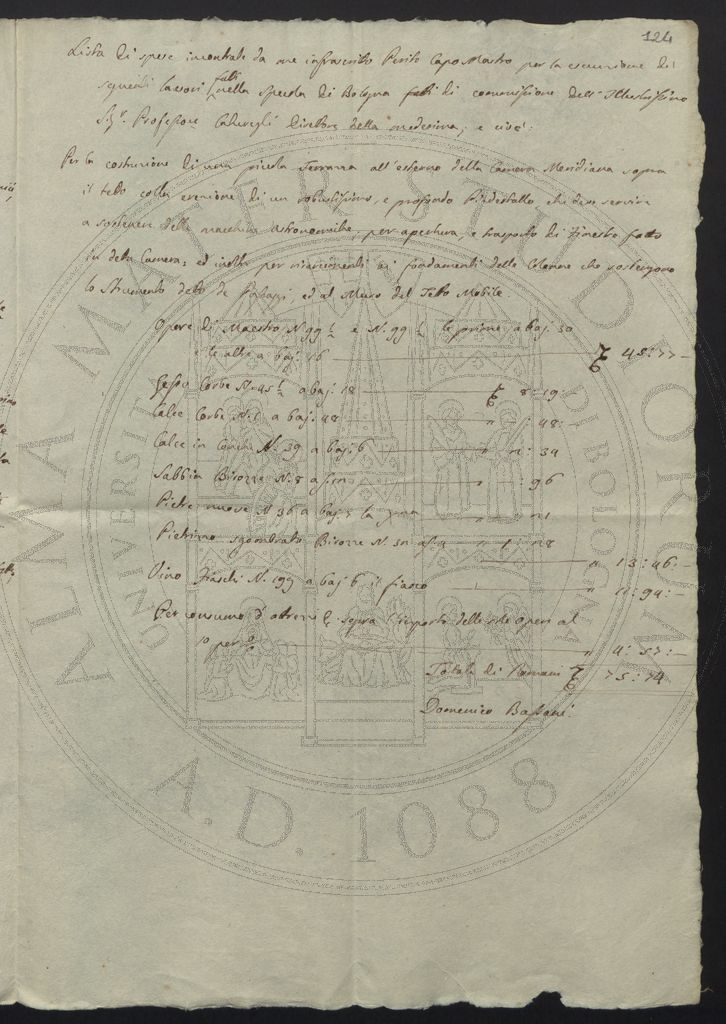 124
Lista di spese incontrate da me infrascritto Perito Capo Mastro per la esecuzione dei
seguenti lavori fatti nella Specola di Bologna fatti di commissione dell' Illustrissimo
Sig.r Professore Caturegli Direttore della medesima, e cioè:
Per la costruzione di una piccola Terrazza all'esterno della Camera Meridiana sopra
il tetto colla erezione di un robustissimo, e profondo Piedestallo, che deve servire
a sostenere delle macchine astronomiche, per apertura, e trasporto di Finestre fatto
in detta Camera; ed inoltre per ai fondamenti delle Colonne che sostengono
lo Strumento detto de Passaggi, ed al Muro del Tetto Mobile.
Opere di Maestro N. 99 e N. 99 le prime a baj. 30
e le altre a baj. 16 45:77
Gesso Corbe N. 45 a baj. 18 8:19:
Calce Corbe N. 1 a baj. 48 " :48:
Calce in Conche N. 39 a baj. 6 " 2:34
Sabbia Birozze N. 8 a " :96
Pietre nuove N. 36 a baj. la "
Pietrino sgombrato Birozze N. "
" 13:46:
Vino Fiaschi N. 199 a baj. 6 il fiasco " 11:94:
Per consumo d'attrezzi sopra l'importo delle opere al
10 per % " 4:57:
Totale di Romani 75:74
Domenico Bassani
ALMA MATER STUDIORUM
UNIVERSITÀ DI BOLOGNA
A.D. 1088